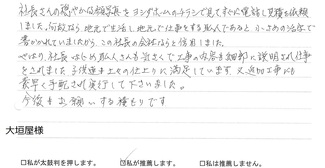 社長さんの穏やかな顔写真をヨシダホームのチラシで見てすぐに電話し見積を依頼
しました。何故なら地元で生活し地元で仕事をする職人であると
書かれていましたから。この社長の会社ならと信用しました。
やはり、社長はじめ職人さんも皆さんで工事の内容を細部に説明され仕事
をされました。子供達も上々の仕上りに満足しています。又追加工事にも
素早く手配され実行して下さいました。
今後もお願いする積もりです
大垣屋様
□私が太鼓判を押します。 ☑私が推薦します。 □私は推薦しません。